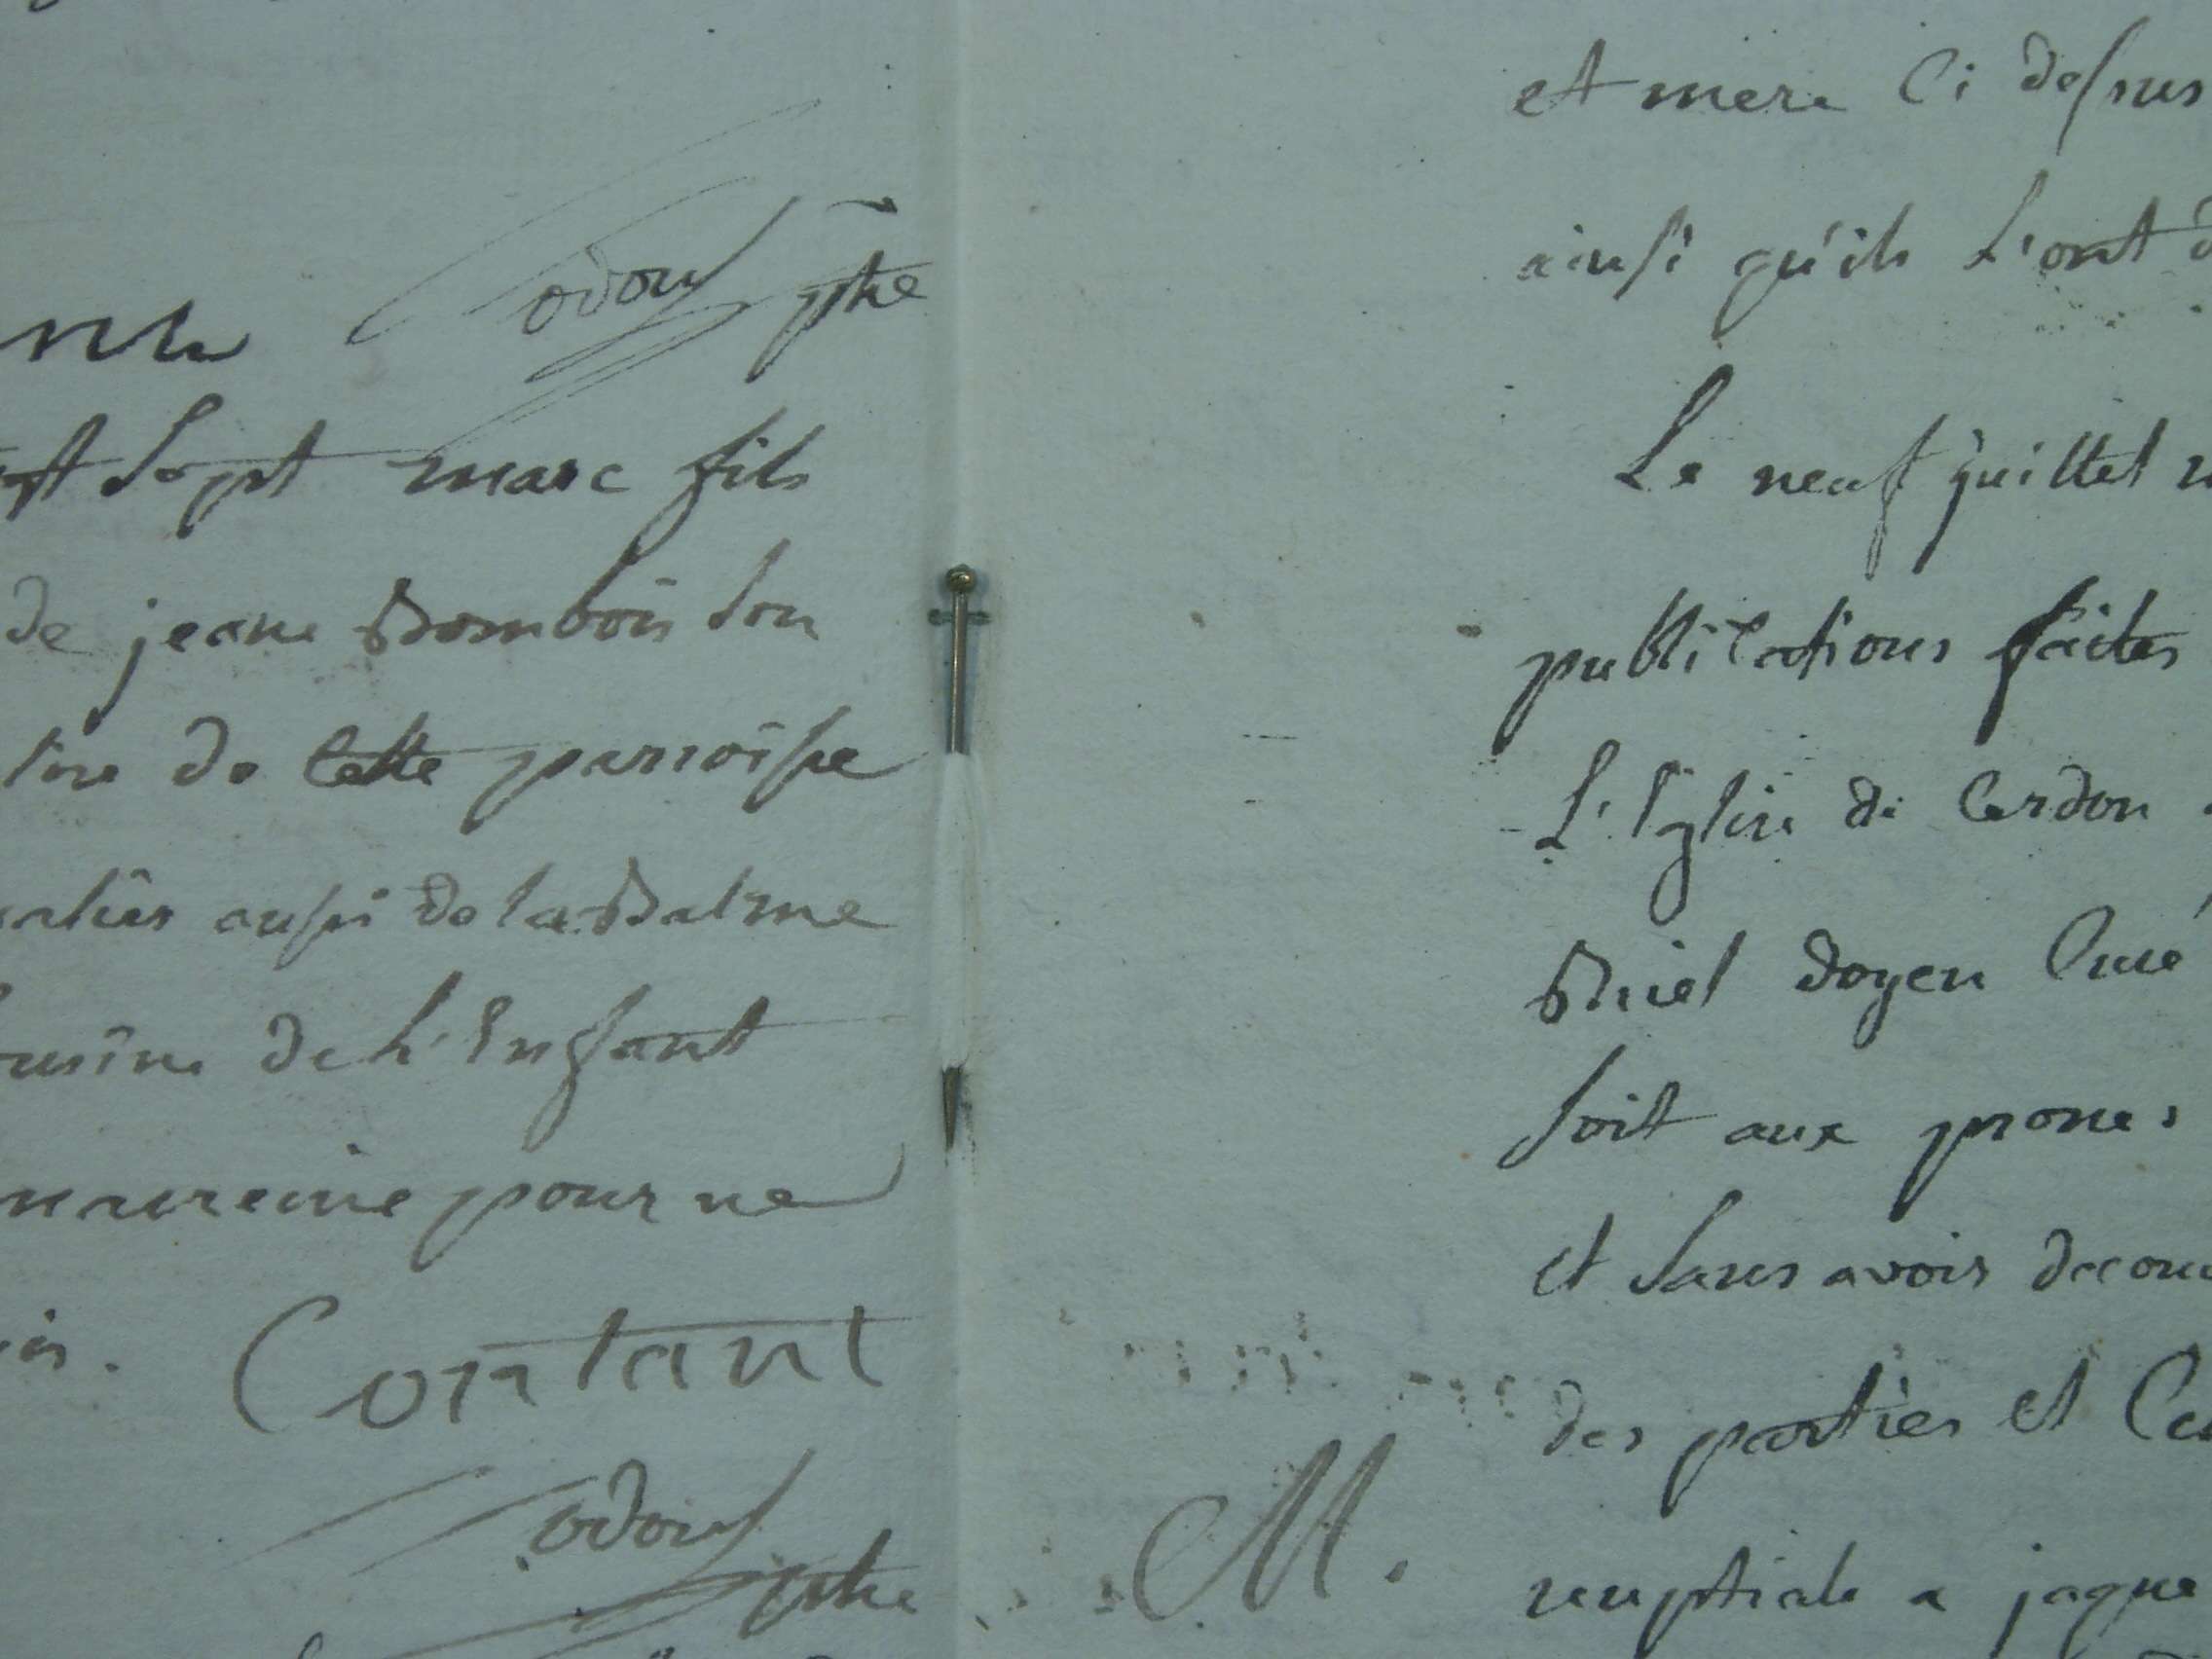 odouy ptre
sept marc fils
de jeane Bombois son
de cette parroisse
aussi de la Balme
de L'Enfant
pour ne
Contant
odouy
ptre
et mere Ci dessus
ainsi qu'ils L'ont
Le neuf juillet
publications faites
L'Eglise de Cerdon
Bruel doyen Curé
soit aux prones
et sans avoir
des parties et
M.
nuptiale a jaque